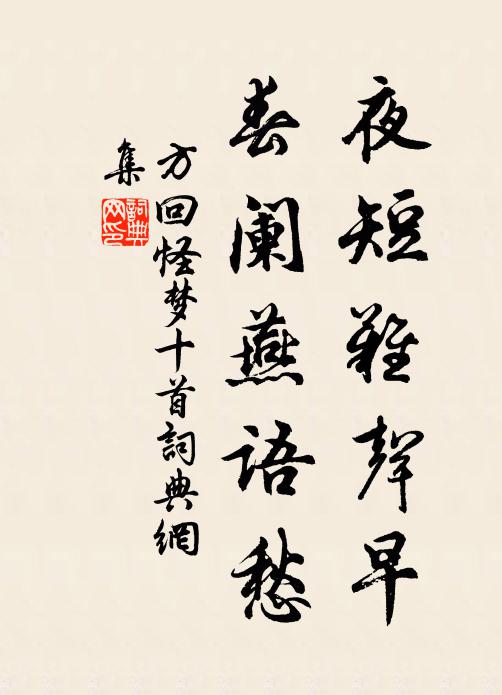 夜短雞聲早
春阑燕語愁
方回怪梦十首詞典網
集
詞典网印